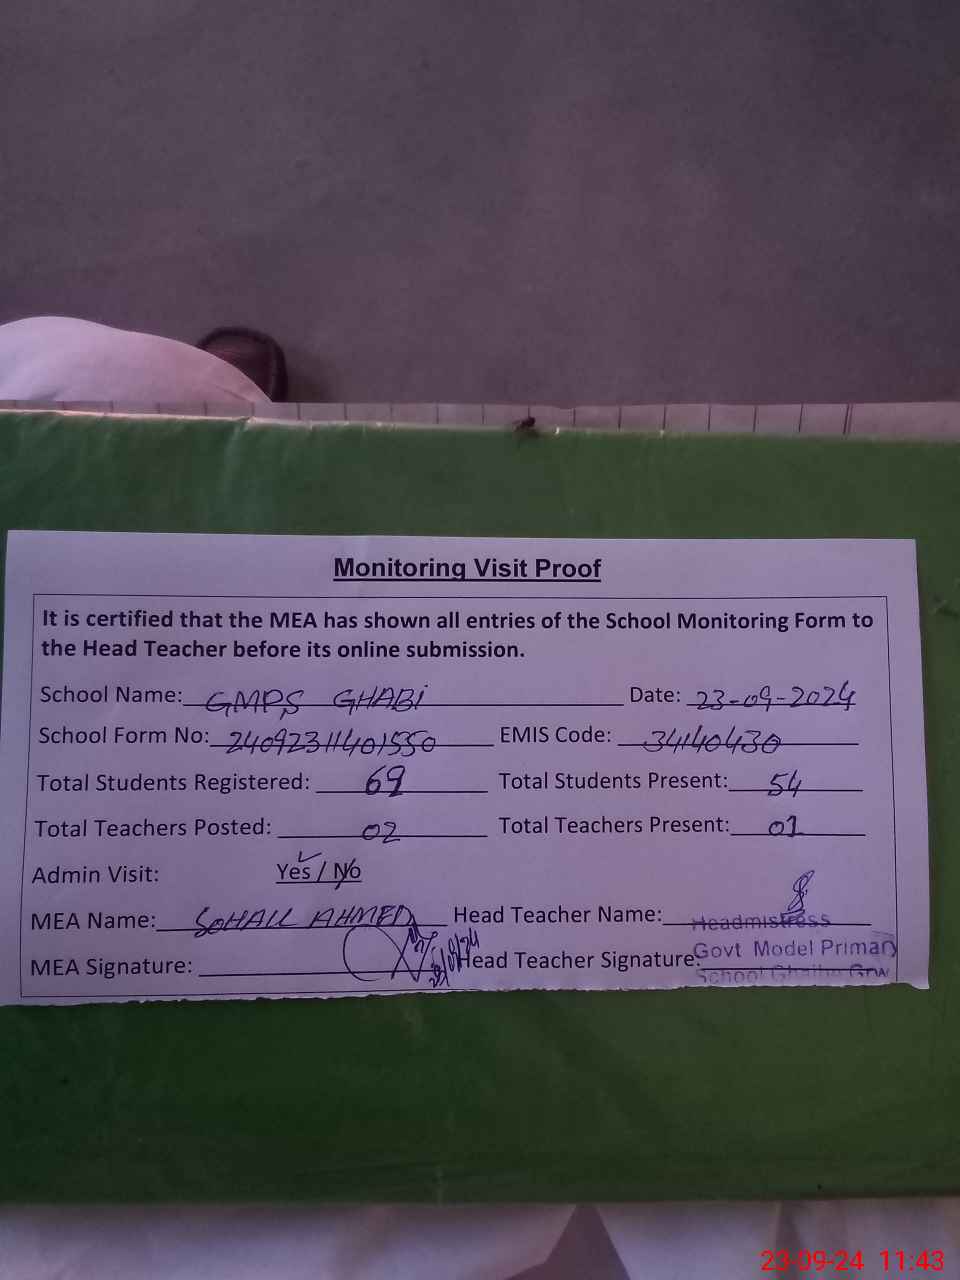 Monitoring Visit Proof
It is certified that the MEA has shown all entries of the School Monitoring Form to
the Head Teacher before its online submission.
School Name: GMPS GHABI Date: 23-09-2024
School Form No: 24092311401550 EMIS Code: 34140430
Total Students Registered: 69 Total Students Present: 54
Total Teachers Posted: 02 Total Teachers Present: 01
Admin Visit: Yes / No
MEA Name: SOHAIL AHMED Head Teacher Name:
Headmistress
MEA Signature: Head Teacher Signature:
Govt Model Primary
School
23-09-24 11:43